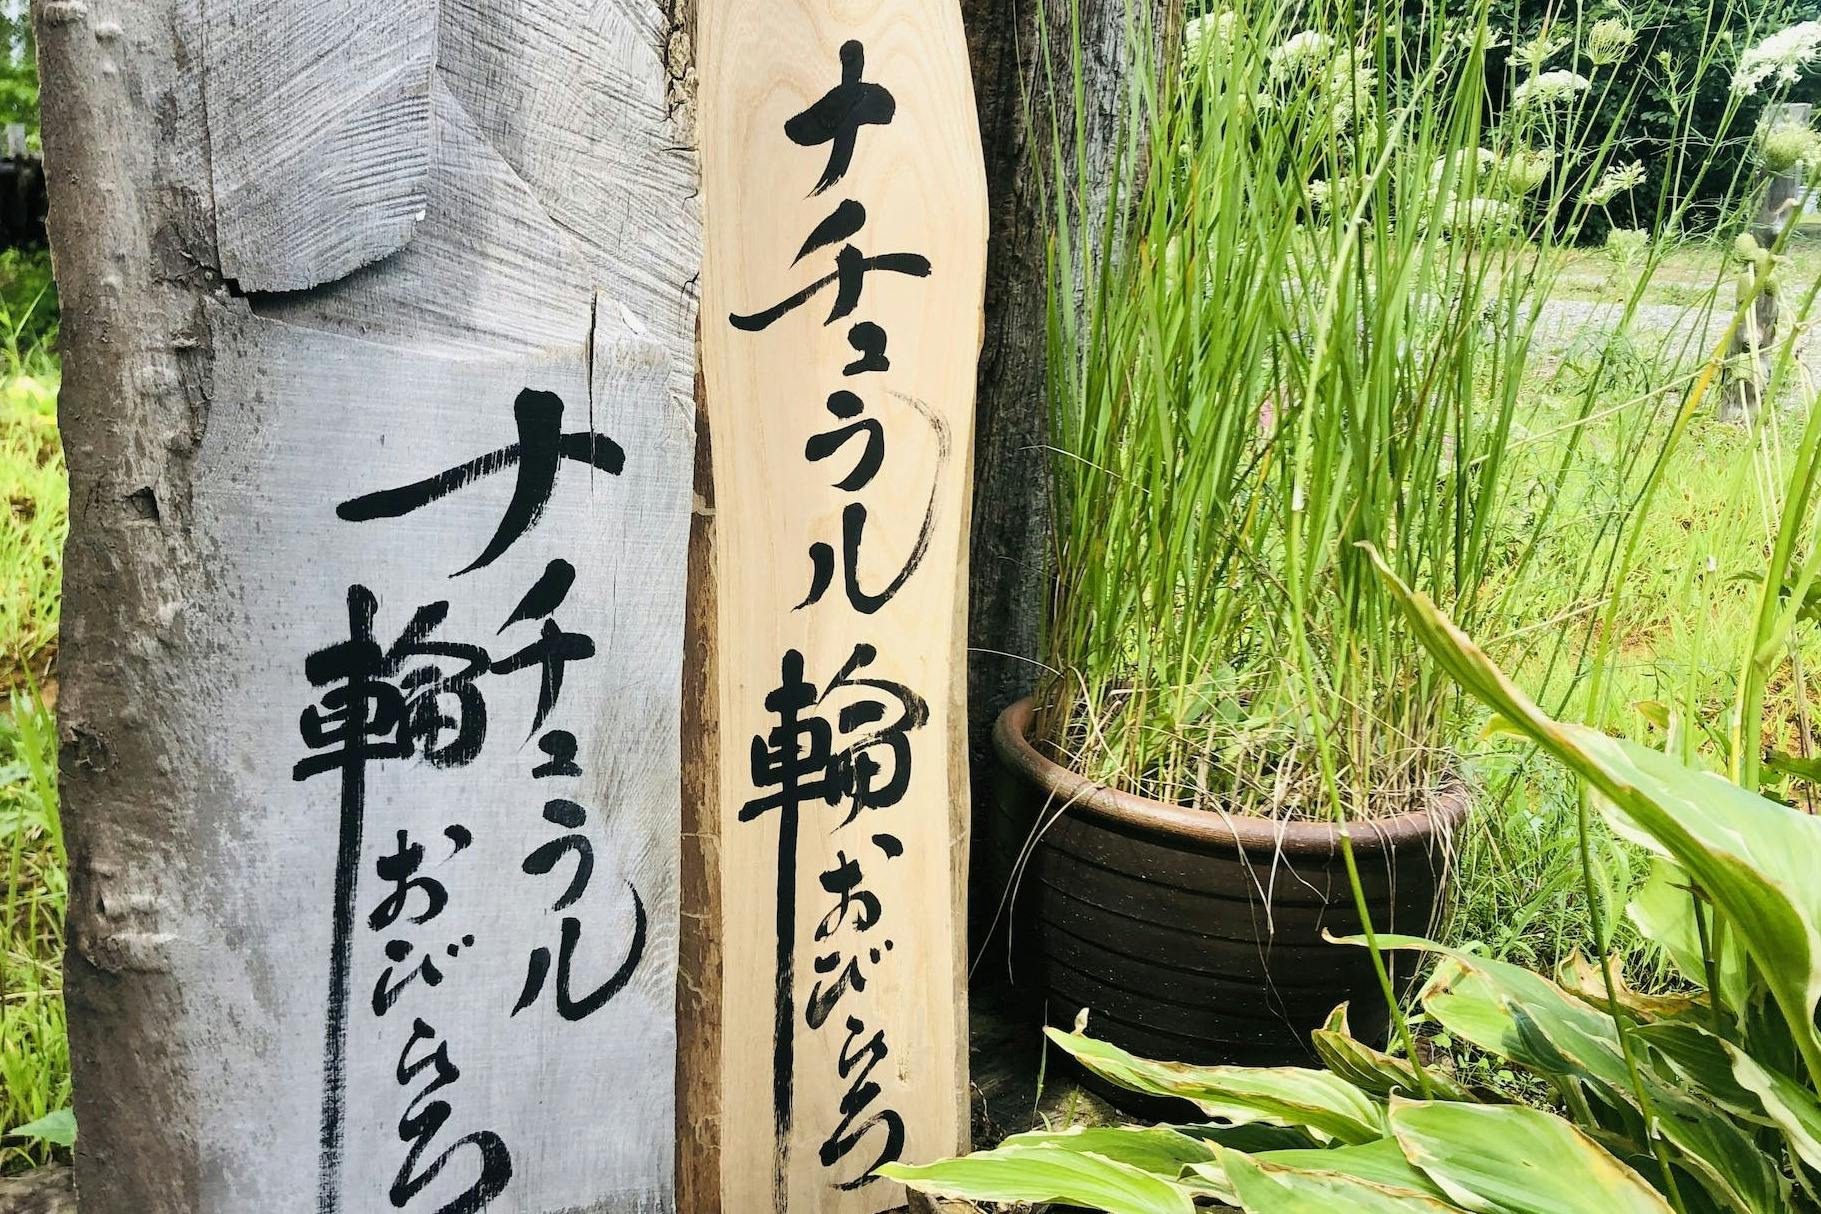 ナチュラル輪おびひろ
ナチュラル
輪おびひろ